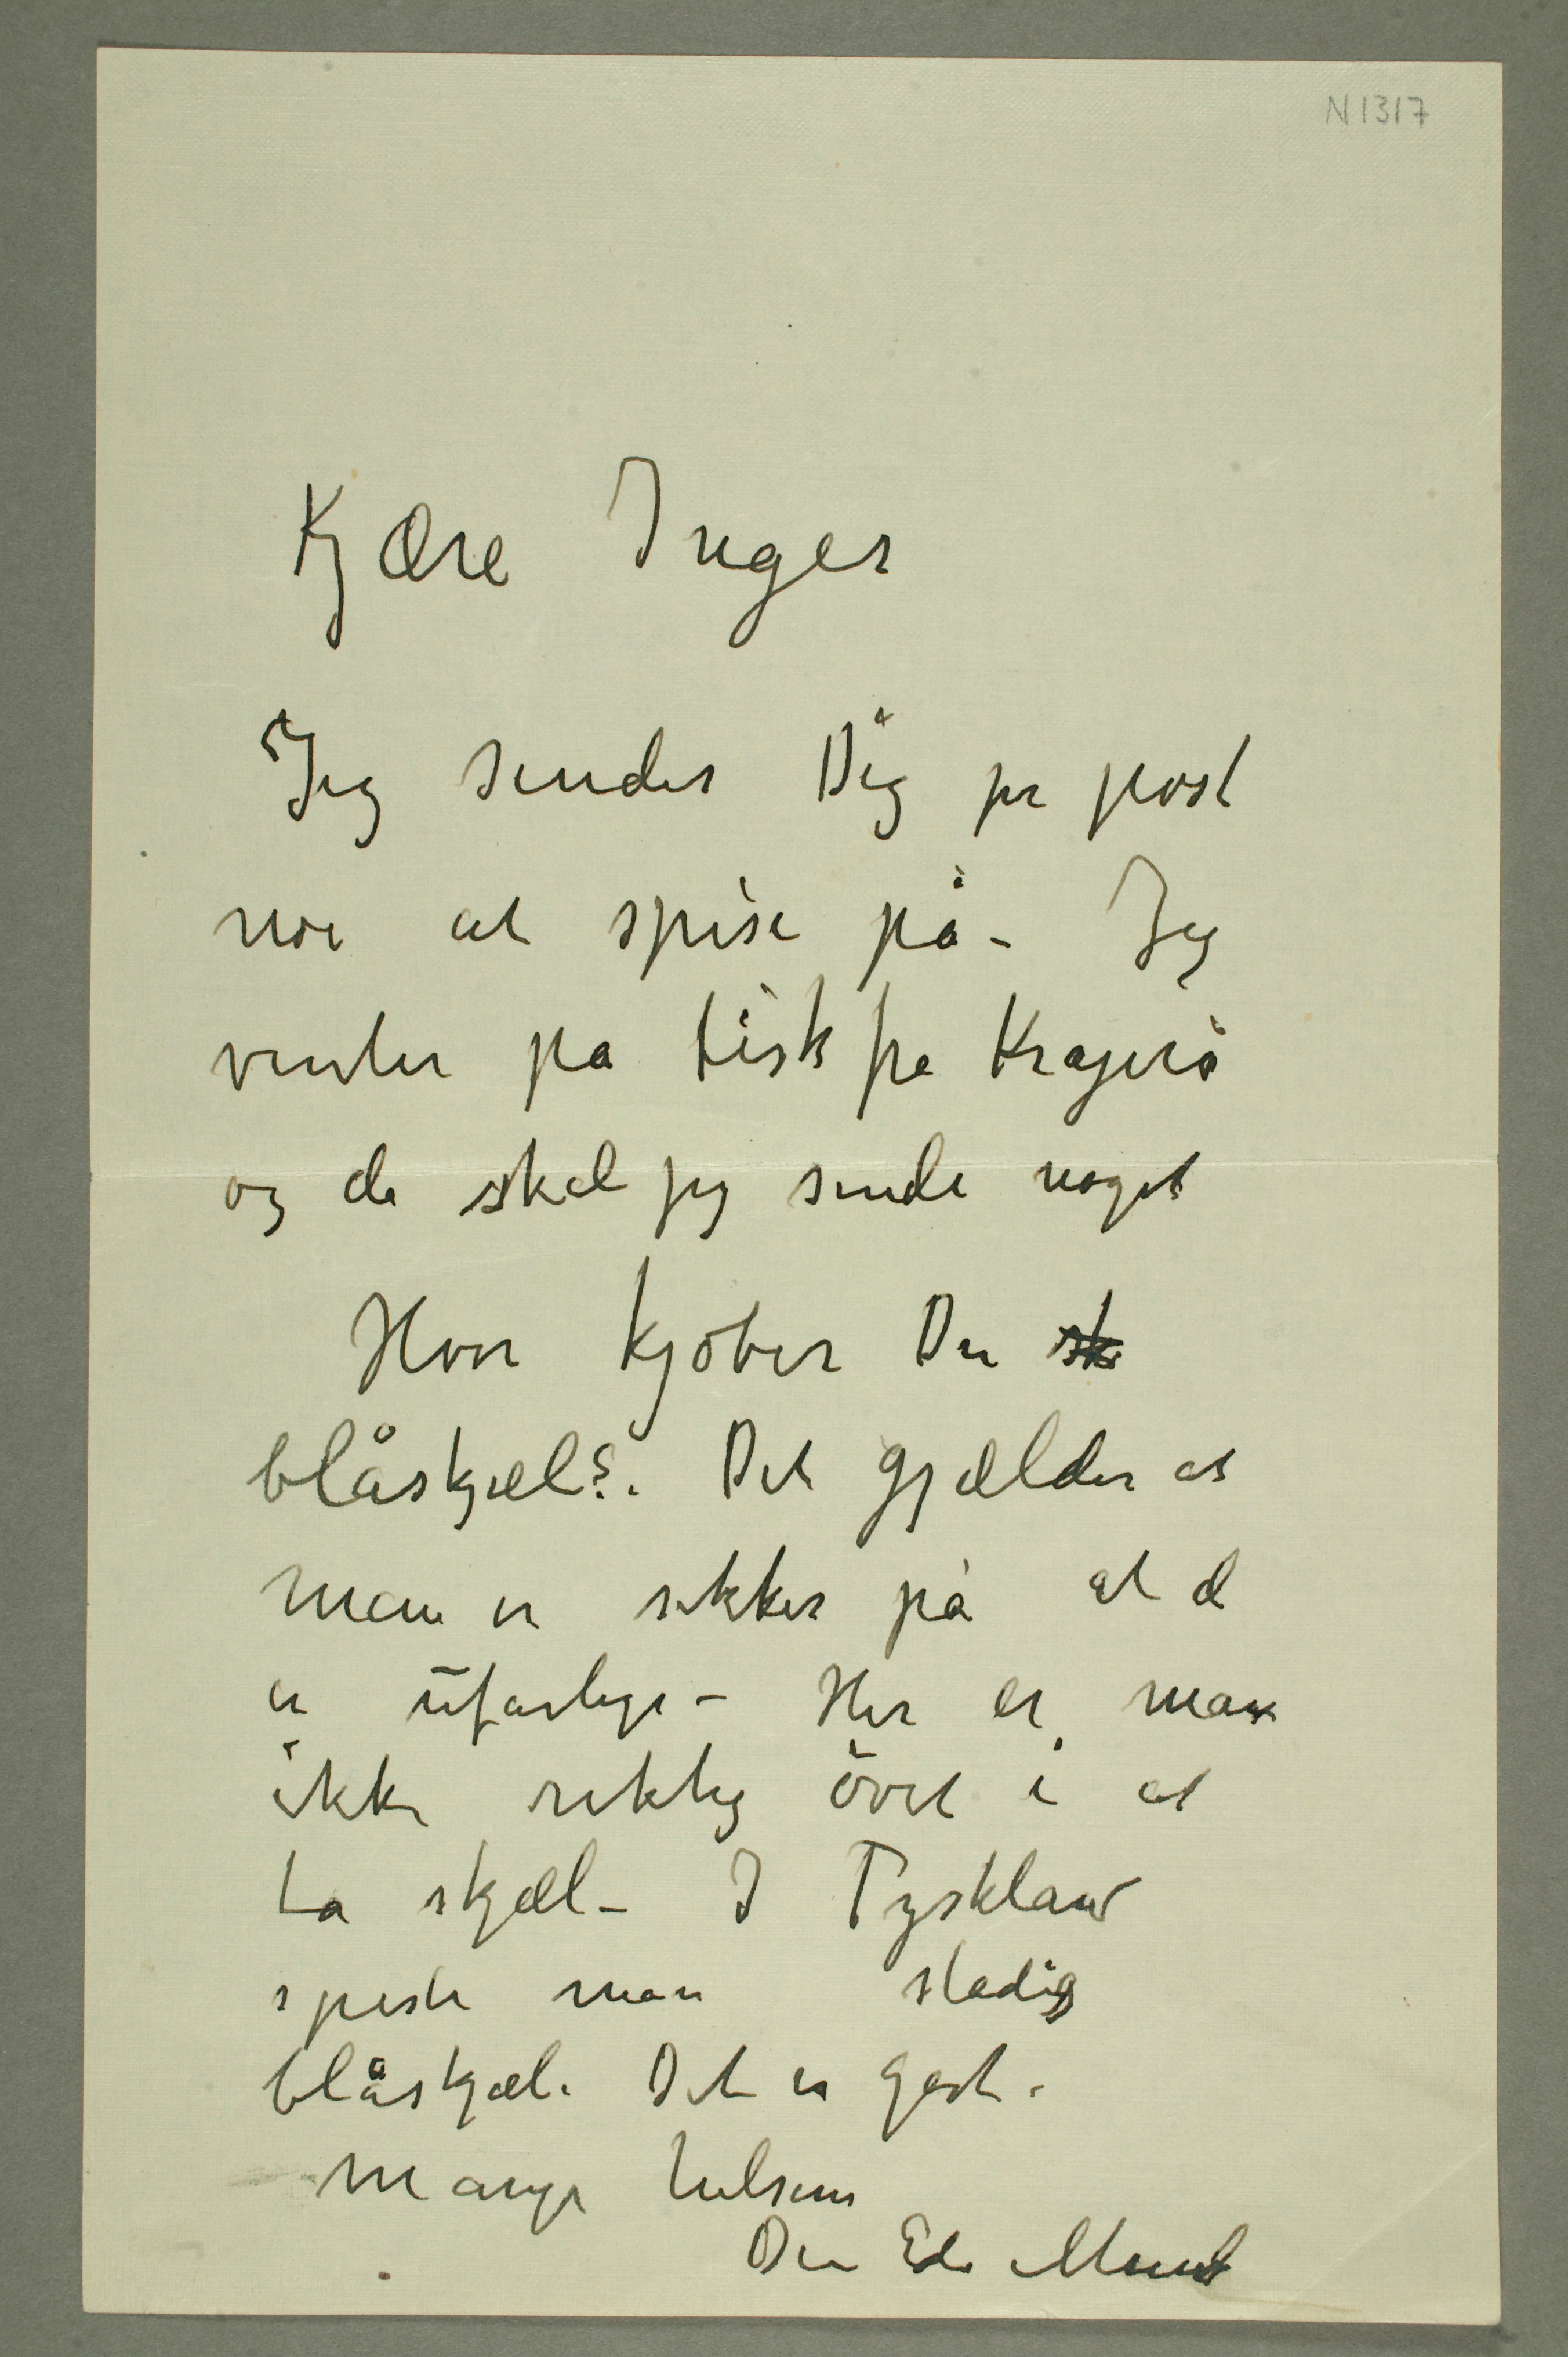 N 1317
Kjære Inger
Jeg sender Dig pr post
noe at spise på – Jeg
venter på fisk fra Kragerö
og da skal jeg sende noget
Hvor kjöber Du sk
blåskjæl?. Det gjælder at
man er sikker på at d
er ufarlige – Her er man
ikke riktig övet i at
ta skjæl – I Tyskland
spiste man stadig
blåskjæl. Det er godt.
Mange hilsener
Din Edv Munch